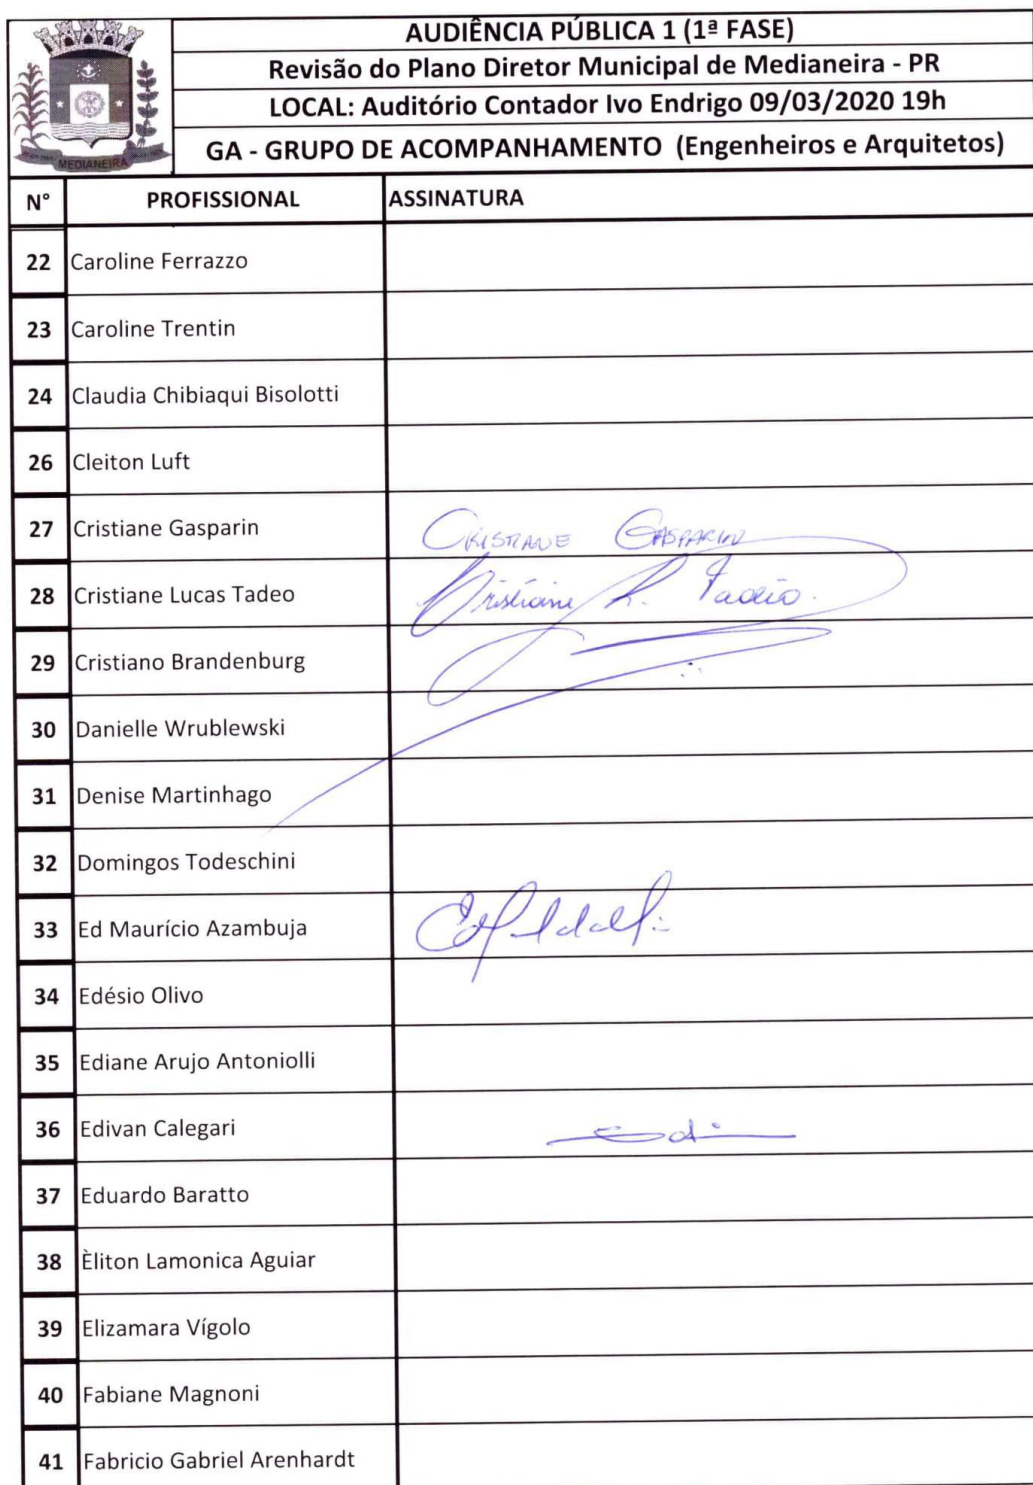 AUDIÊNCIA PÚBLICA 1 (1ª FASE)
Revisão do Plano Diretor Municipal de Medianeira - PR
LOCAL: Auditório Contador Ivo Endrigo 09/03/2020 19h
GA - GRUPO DE ACOMPANHAMENTO (Engenheiros e Arquitetos)
MEDIANEIRA
N° PROFISSIONAL ASSINATURA
22 Caroline Ferrazzo
23 Caroline Trentin
24 Claudia Chibiaqui Bisolotti
26 Cleiton Luft
27 Cristiane Gasparin CRISTIANE GASPARIN
28 Cristiane Lucas Tadeo Cristiane L. Tadeo.
29 Cristiano Brandenburg
30 Danielle Wrublewski
31 Denise Martinhago
32 Domingos Todeschini
33 Ed Maurício Azambuja
34 Edésio Olivo
35 Ediane Arujo Antoniolli
36 Edivan Calegari
37 Eduardo Baratto
38 Èliton Lamonica Aguiar
39 Elizamara Vígolo
40 Fabiane Magnoni
41 Fabricio Gabriel Arenhardt